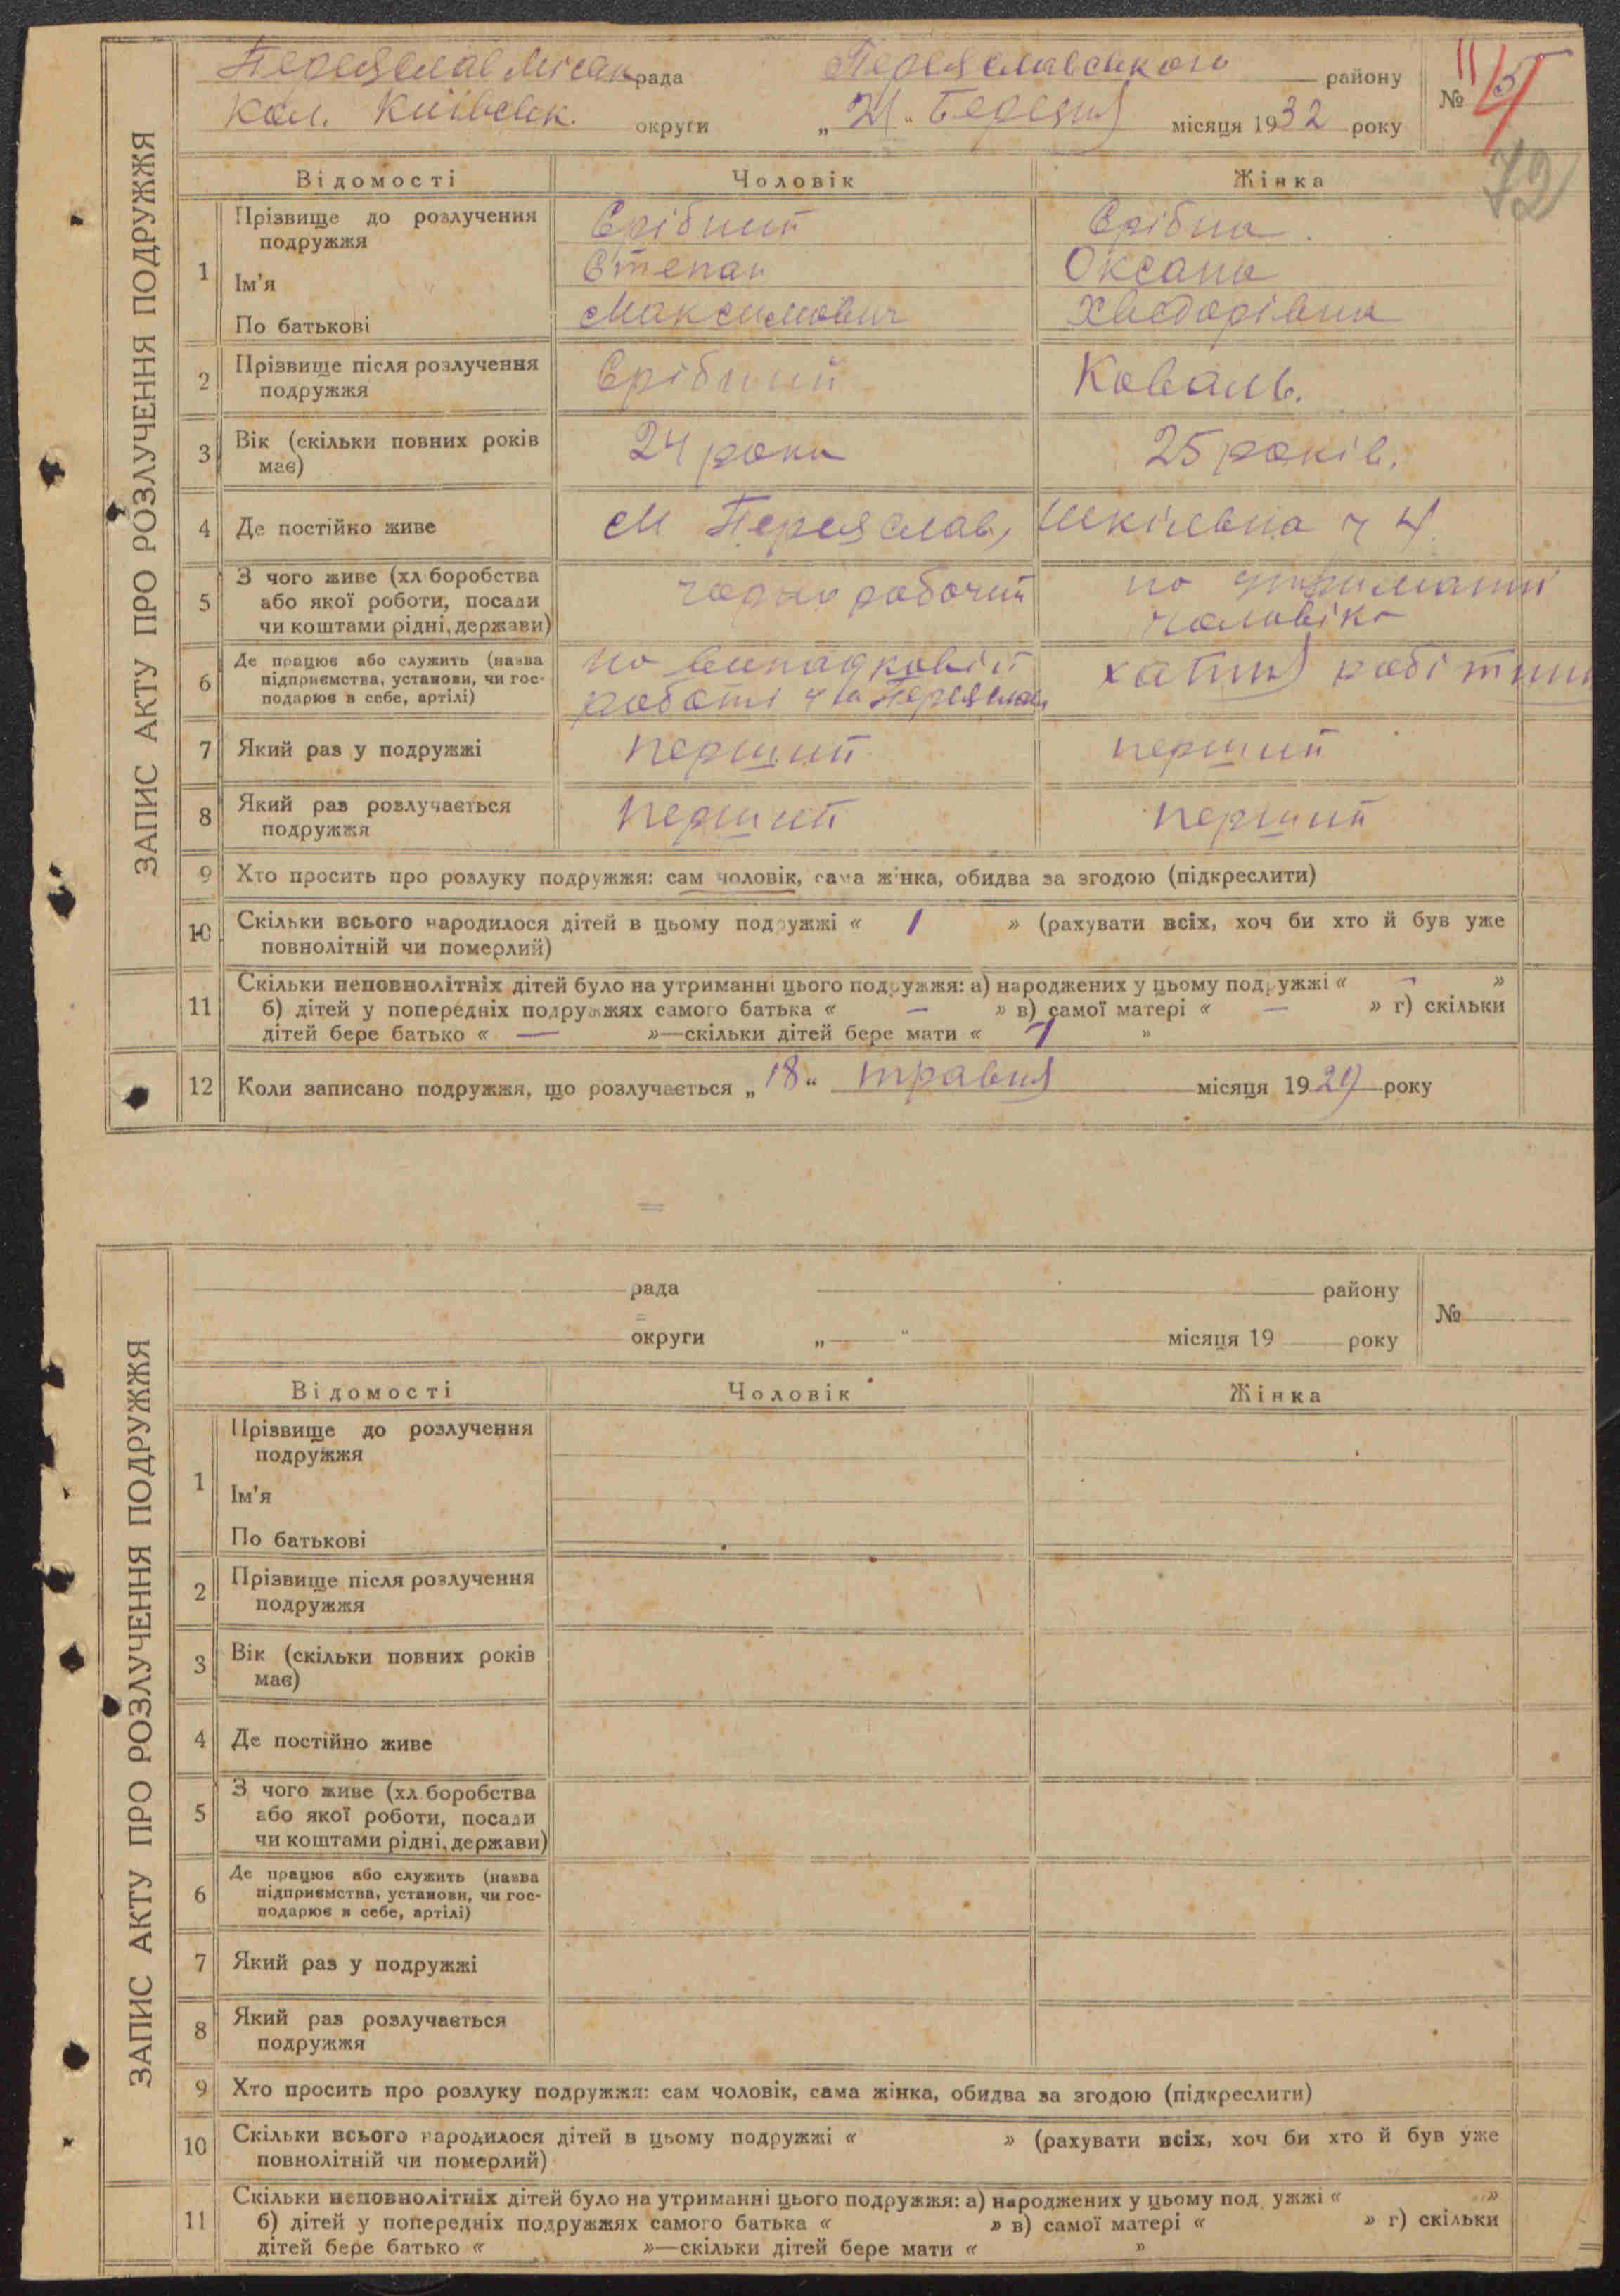 Переяслав Міськ рада Переяславського району
Кол. Київськ. округи „21“ Березня місяця 1932 року № 5
72
ЗАПИС АКТУ ПРО РОЗЛУЧЕННЯ ПОДРУЖЖЯ
Відомості Чоловік Жінка
1 Прізвище до розлучення подружжя Срібний Срібна
Ім'я Степан Оксана
По батькові Максимович Хведорівна
2 Прізвище після розлучення подружжя Срібний Коваль.
3 Вік (скільки повних років має) 24 роки 25 років.
4 Де постійно живе м Переяслав, Шкільна ч 4.
5 З чого живе (хл боробства
або якої роботи, посади
чи коштами рідні, держави)
чорно рабочий
на утриманні
чоловіка
6 Де працює або служить (назва
підприємства, установи, чи гос-
подарює в себе, артілі)
на випадковій
роботі Переяслав
хатня
7 Який раз у подружжі перший перший
8 Який раз розлучається подружжя перший перший
9 Хто просить про розлуку подружжя: сам чоловік, сама жінка, обидва за згодою (підкреслити)
10 Скільки всього народилося дітей в цьому подружжі « 1 » (рахувати всіх, хоч би хто й був уже
повнолітній чи померлий)
11 Скільки неповнолітніх дітей було на утриманні цього подружжя: а) народжених у цьому подружжі « — »
б) дітей у попередніх подружжях самого батька « — » в) самої матері « — » г) скільки
дітей бере батько « — »—скільки дітей бере мати « 1 »
12 Коли записано подружжя, що розлучається „18“ травня місяця 1929 року
рада району
округи „ “ місяця 19 року №
ЗАПИС АКТУ ПРО РОЗЛУЧЕННЯ ПОДРУЖЖЯ
Відомості Чоловік Жінка
1 Прізвище до розлучення
подружжя
Ім'я
По батькові
2 Прізвище після розлучення
подружжя
3 Вік (скільки повних років
має)
4 Де постійно живе
5 З чого живе (хл боробства
або якої роботи, посади
чи коштами рідні, держави)
6 Де працює або служить (назва
підприємства, установи, чи гос-
подарює в себе, артілі)
7 Який раз у подружжі
8 Який раз розлучається
подружжя
9 Хто просить про розлуку подружжя: сам чоловік, сама жінка, обидва за згодою (підкреслити)
10 Скільки всього народилося дітей в цьому подружжі « » (рахувати всіх, хоч би хто й був уже
повнолітній чи померлий)
11 Скільки неповнолітніх дітей було на утриманні цього подружжя: а) народжених у цьому под ужжі « »
б) дітей у попередніх подружжях самого батька « » в) самої матері « » г) скільки
дітей бере батько « »—скільки дітей бере мати « »